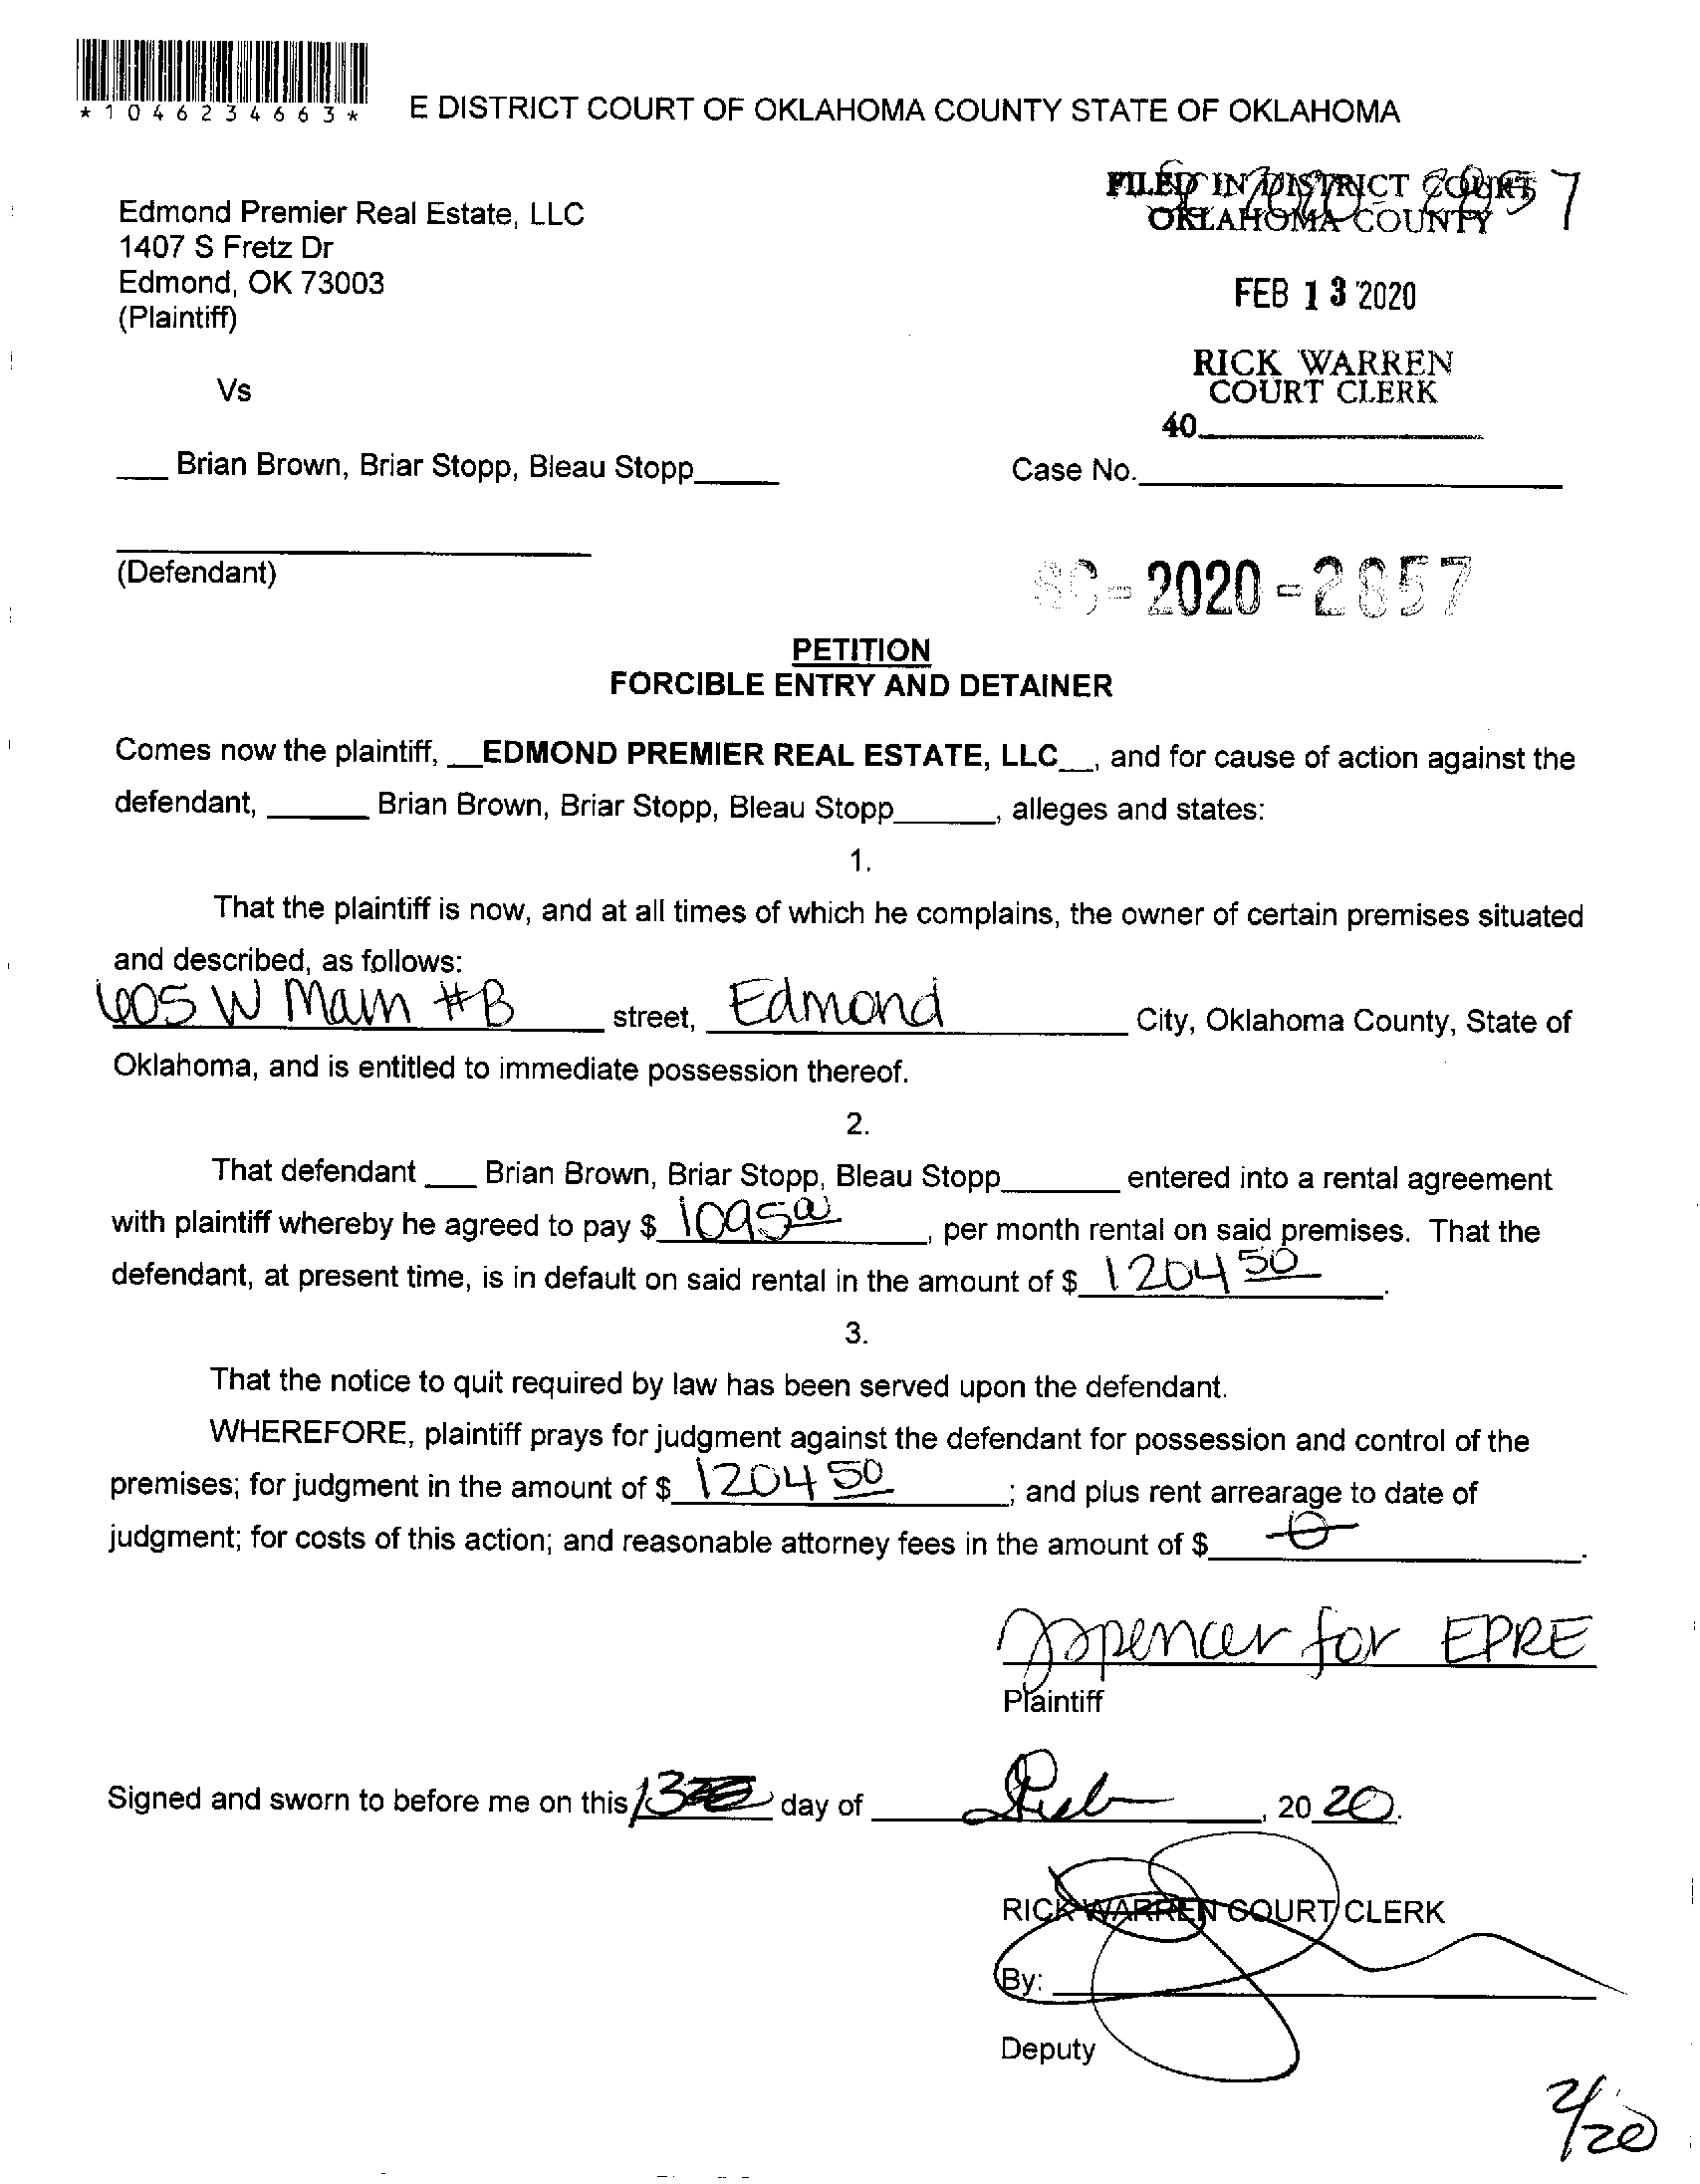 *1046234663*
E DISTRICT COURT OF OKLAHOMA COUNTY STATE OF OKLAHOMA
FILED IN DISTRICT COURT
OKLAHOMA COUNTY
Edmond Premier Real Estate, LLC
1407 S Fretz Dr
Edmond, OK 73003
(Plaintiff)
FEB 13 2020
RICK WARREN
COURT CLERK
40
Vs
Brian Brown, Briar Stopp, Bleau Stopp
Case No.
(Defendant)
SC-2020-2857
PETITION
FORCIBLE ENTRY AND DETAINER
Comes now the plaintiff, __EDMOND PREMIER REAL ESTATE, LLC__, and for cause of action against the
defendant, ______ Brian Brown, Briar Stopp, Bleau Stopp______, alleges and states:
1.
That the plaintiff is now, and at all times of which he complains, the owner of certain premises situated
and described, as follows:
605 W Main #B street, Edmond City, Oklahoma County, State of
Oklahoma, and is entitled to immediate possession thereof.
2.
That defendant ___ Brian Brown, Briar Stopp, Bleau Stopp_______ entered into a rental agreement
with plaintiff whereby he agreed to pay $ 1095 00, per month rental on said premises. That the
defendant, at present time, is in default on said rental in the amount of $ 1204 50.
3.
That the notice to quit required by law has been served upon the defendant.
WHEREFORE, plaintiff prays for judgment against the defendant for possession and control of the
premises; for judgment in the amount of $ 1204 50; and plus rent arrearage to date of
judgment; for costs of this action; and reasonable attorney fees in the amount of $ 0.
JSpencer for EPRE
Plaintiff
Signed and sworn to before me on this 13 day of Feb, 20 20.
RICK WARREN COURT CLERK
By:
Deputy
2/20